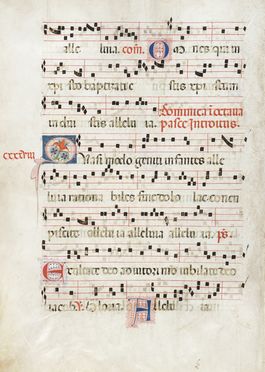 alle luia. com. O mnes qui in
xpisto baptizati estis xpistum
induistis alleluia. Dominica in octava
pasce Introitus.
cxxxviii Q uasi modo geniti infantes alle
luia rationa biles sine dolo lac concu
piscite alleluia alleluia alleluia. ps.
E xultate deo adiutori nostro iubilate deo
iacob. Gloria. A llelu ia